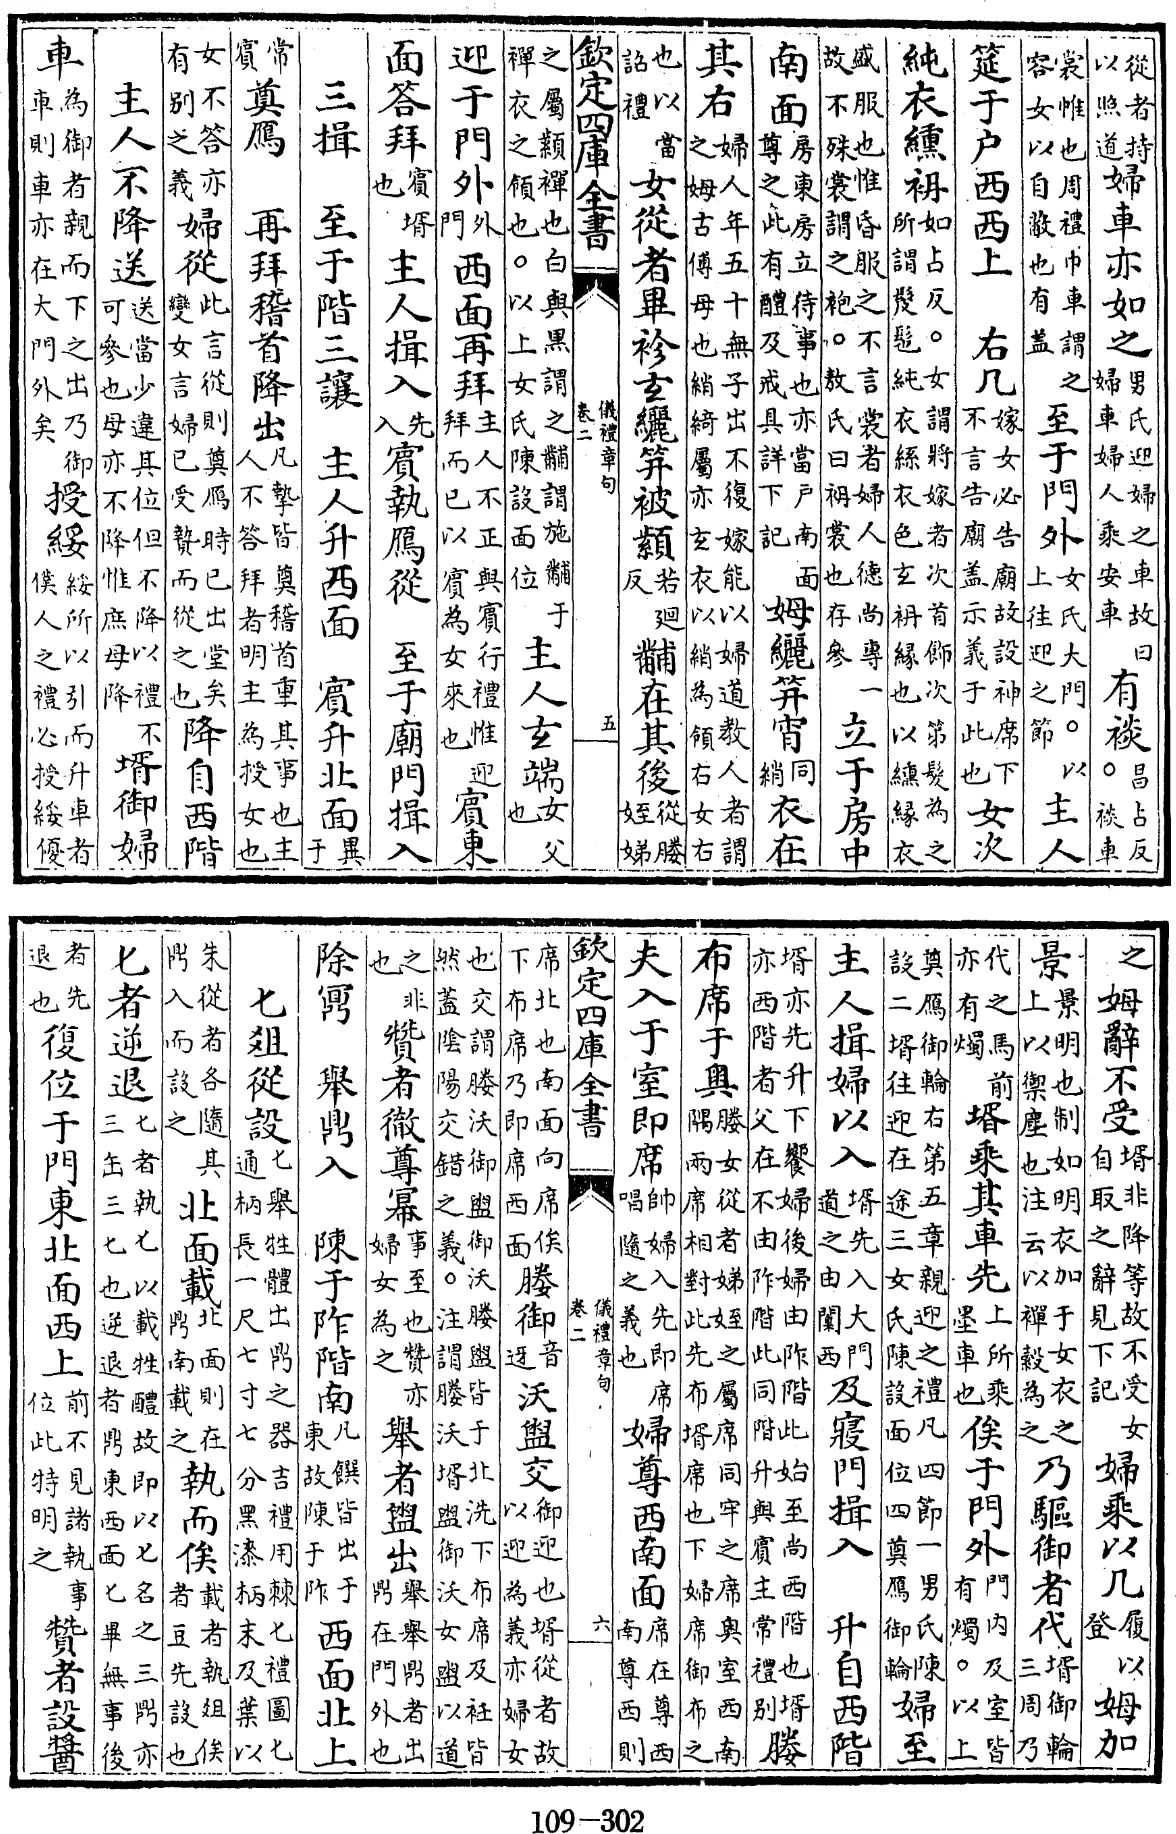 從者持以炤道婦車亦如之男氏迎婦之車故曰婦車婦人乘安車有裧昌占反。裧車
裳惟也周禮巾車謂之容女以自蔽也有盖至于門外女氏大門。以上往迎之節主人
筵于户西西上　右几嫁女必告廟故設神席下不言告廟盖示義于此也女次
純衣纁袡如占反。女謂將嫁者次首飾次第髮為之所謂髮髢純衣絲衣色玄袡緣也以纁緣衣
盛服也惟昏服之不言裳者婦人德尚專一故不殊裳謂之袍。敖氏曰袡裳也存參立于房中
南面房東房立待事也亦當户南面尊之此有醴及戒具詳下記姆纚笄宵同綃衣在
其右婦人年五十無子出不復嫁能以婦道教人者謂之姆古傅母也綃綺屬亦玄衣以綃為領右女右
也以當詔禮女從者畢袗玄纚笄被顈若迥反黼在其後從媵姪娣
欽定四庫全書　儀禮章句卷二　五
之屬顈襌也白與黑謂之黼謂施黼于襌衣之領也。以上女氏陳設面位主人玄端女父也
迎于門外外門西面再拜主人不正與賓行禮惟迎拜而已以賓為女來也賓東
面答拜賓壻也主人揖入先入賓執鴈從　至于廟門揖入
三揖　至于階三讓　主人升西面　賓升北面異于
常賓奠鴈　再拜稽首降出凡摯皆奠稽首重其事也主人不答拜者明主為授女也
女不答亦有别之義婦從此言從則奠鴈時已出堂矣變女言婦已受贄而從之也降自西階
主人不降送送當少違其位但不降以禮不可參也母亦不降惟庶母降壻御婦
車為御者親而下之出乃御車則車亦在大門外矣授綏綏所以引而升車者僕人之禮必授綏優
之　姆辭不受壻非降等故不受女自取之辭見下記婦乘以几履以登姆加
景景明也制如明衣加于女衣之上以禦塵也注云以襌縠為之乃驅御者代壻御輪三周乃
代之馬前亦有燭壻乘其車先上所乘墨車也俟于門外門内及室皆有燭。以上
奠鴈御輪右第五章親迎之禮凡四節一男氏陳設二壻往迎在途三女氏陳設面位四奠鴈御輪婦至
主人揖婦以入壻先入大門道之由闑西及寢門揖入　升自西階
壻亦先升下饗婦後婦由阼階此始至尚西階也壻亦西階者父在不由阼階此同階升與賓主常禮别媵
布席于奥媵女從者娣姪之屬席同牢之席奥室西南隅兩席相對此先布壻席也下婦席御布之
夫入于室即席帥婦入先即席唱隨之義也婦尊西南面席在尊西南尊西則
欽定四庫全書　儀禮章句卷二　六
席北也南面向席俟下布席乃即席西面媵御音迓沃盥交御迎也壻從者故以迎為義亦婦女
也交謂媵沃御盥御沃媵盥皆于北洗下布席及衽皆然盖陰陽交錯之義。注謂媵沃壻盥御沃女盥以道
之非也贊者徹尊冪事至也贊亦婦女為之舉者盥出舉舉鼎者出鼎在門外也
除鼏　舉鼎入　陳于阼階南凡饌皆出于東故陳于阼西面北上
匕俎從設匕舉牲體出鼎之器吉禮用棘匕禮圖匕通柄長一尺七寸七分黑漆柄末及葉以
朱從者各隨其鼎入而設之北面載北面則在鼎南載之執而俟載者執俎俟者豆先設也
匕者逆退匕者執匕以載牲醴故即以匕名之三鼎亦三缶三匕也逆退者鼎東西面匕畢無事後
者先退也復位于門東北面西上前不見諸執事位此特明之贊者設醬
109—302